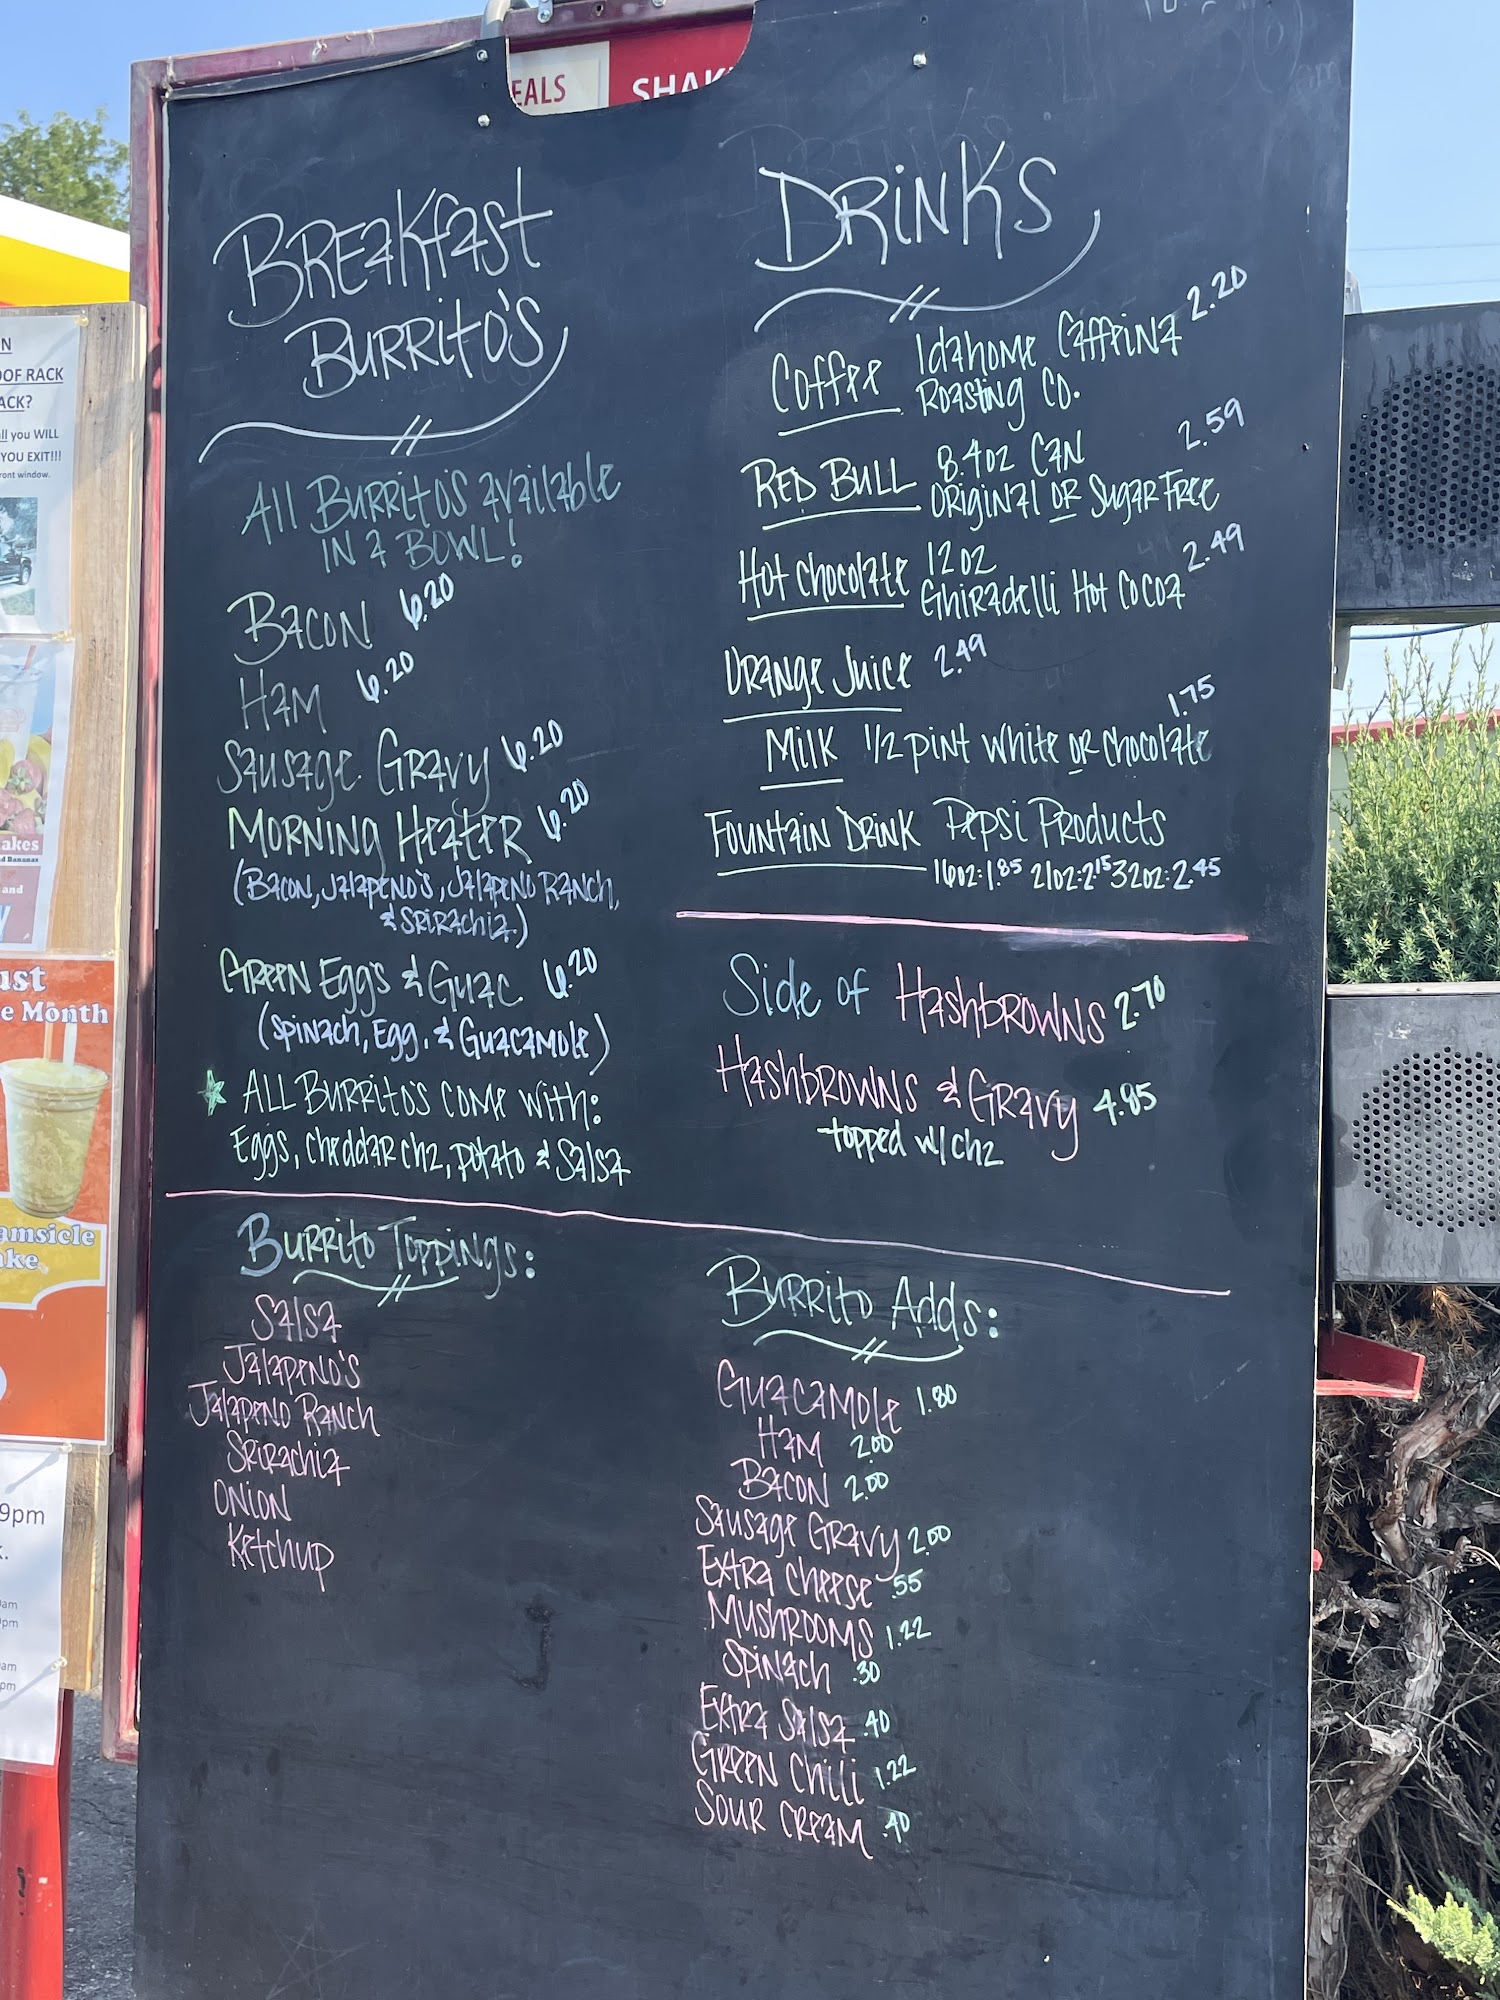 EALS
SHAK
BREAKfast
BURRito'S
All BURRito'S available
IN a BOWL!
BACON 6.20
HAM 6.20
Sausage Gravy 6.20
MORNING HEATER 6.20
(BACON, JALAPENO'S, JALAPENO RANCH,
& SRIRACHIA)
GREEN Egg's & GUAC 6.20
(SPINACH, Egg, & GUACAMOLE)
ALL BURRITO'S COME WITH:
Eggs, Cheddar Chz, Potato & Salsa
DRINKS
Coffee Idahome Caffeina 2.20
Roasting Co.
RED BULL 8.4oz CAN 2.59
ORIGINAL OR Sugar Free
Hot Chocolate 12 oz 2.49
Ghiradelli Hot Cocoa
Orange Juice 2.49
Milk 1/2 pint White or Chocolate 1.75
FOUNTAIN DRINK Pepsi Products
16oz:1.85 21oz:2.15 32oz:2.45
Side of HASHBROWNS 2.70
HASHBROWNS & GRAVY 4.85
topped w/chz
Burrito Toppings:
Salsa
JALAPENO'S
JALAPENO RANCH
SRIRACHIA
ONION
Ketchup
Burrito Adds:
GUACAMOLE 1.80
HAM 2.00
BACON 2.00
Sausage Gravy 2.00
EXTRA Cheese .55
MUSHROOMS 1.22
SPINACH .30
EXTRA SALSA .40
GREEN Chili 1.22
SOUR CREAM .40
N
OOF RACK
ACK?
all you WILL
YOU EXIT!!!
ront window.
akes
nd Bananas
and
Y
ust
e Month
amsicle
ake
9pm
k.
0am
0pm
0am
pm